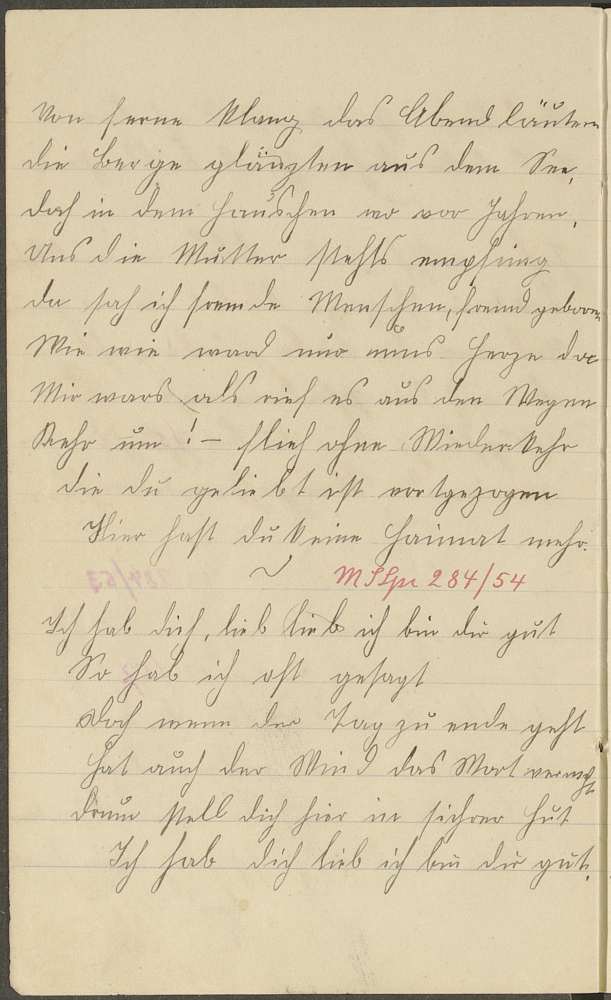 Von ferne klang das Abend läuten
die Berge glänzten aus dem See,
doch in dem Häuschen wo vor Jahren,
Uns die Mutter stehts empfing
da sah ich fremde Menschen, fremd geboren
Wie wie ward mir ums Herze da
Mir wars als rief es aus den Wegen
Kehr um! – flieh ohne Wiederkehr
die du geliebt ist vortgezogen
Hier hast du keine Heimat mehr.
MSSpr 284/54
Ich hab dich, lieb lieb ich bin dir gut
So hab ich oft gesagt
Doch wenn der Tag zu ende geht
Hat auch der Wind das Wort verweht
drum stell dich hier in sichrer Hut
Ich hab dich lieb ich bin dir gut.